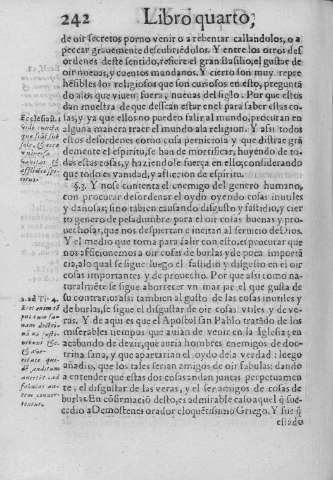 242 Libro quarto,
de oir secretos porno venir o a rebentar callandolos, o a
peccar grauemente descubriēdolos. Y entre los otros des
ordenes deste sentido, refiere el gran Basilio, el gustar de
oir nueuas, y cuentos mundanos. Y cierto son muy repre
hēsibles los religiosos que son curiosos en esto, preguntā
do a los que vienen fuera, nueuas del siglo. Por que estos
dan muestra de que dessean estar en el para saber estas co
sas, y ya que ellos no pueden salir al mundo, procuran en
alguna manera traer el mundo ala religion. Y assi todos
estos desordenes como cosa perniciosa y que distrae grā
demente el espiritu, se han de mortificar, huyēdo de to-
das estas cosas, y haziendose fuerça en ello, considerando
que todo es vanidad, y afliccion de espiritu.
Ecclesiast. 1.
§.3. Y no se contenta el enemigo del genero humano,
con procurar desordenar el oydo oyendo cosas inutiles
y dañosas; sino tambien causando disgusto y fastidio, y cier
to genero de pesadumbre para el oir cosas buenas y pro-
uechosas, que nos despierten e incitan al seruicio de Dios.
Y el medio que toma para salir con esto, es procurar que
nos afficionemos a oir cosas de burlas y de poca importā
cia, alo qual se sigue luego el fastidio y disgusto en el oir
cosas importantes y de prouecho. Por que assi como na-
turalmēte se sigue aborrecer vn mar por el que gusta de
su contrario: assi tambien al gusto de las cosas inutiles
de burlas, se sigue el disgustar de oir cosas vtiles y de ve-
ras. Y de aqui es que el Apostol san Pablo tratādo de los
miserables tiempos que auian de venir en la Iglesia; en
acabando de dezir, que auria hombres enemigos de doc-
trina sana, y que apartarian el oydo dela verdad: luego
añadio, que los tales serian amigos de oir fabulas: dando
a entender que estas dos cosas andan juntas perpetuamen
te, el disgustar de las veras, y el ser amigos de cosas de
burlas. En cōfirmaciō desto, es admirable caso aquel q̄ su-
cedio a Demostenes orador eloquētissimo Griego. Y fue q̄
estādo
2. ad Ti. 4.